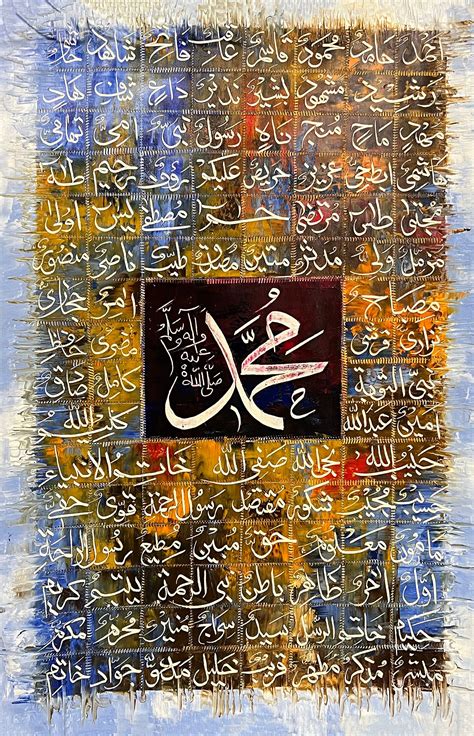 احمد حامد محمود قاسم عاقب فاتح شاهد حاشر
رشيد مشهود بشير نذير داع شاف هاد
مهد ماح منج ناه رسول نبي امي تهامي
هاشمي ابطحي عزيز حريص عليكم رؤف رحيم طه
مجتبى طس مرتضى حم مصطفى يس اولى
مزمل ولي مدثر متين مصدق طيب ناصر منصور
مصباح
امر حجازي
نزاري قرشي
مضري
نبي التوبة
كامل
امين عبدالله
كليم الله
محمد
صلى الله عليه وآله وسلم
حبيب الله نجي الله صفي الله خاتم الأنبياء
حسيب مجيب شكور مقتصد رسول الرحمة قوي حفي
مامون معلوم حق مبين مطيع رسول الراحة
اول اخر ظاهر باطن نبي الرحمة يتيم كريم
حكيم خاتم الرسل سيد سراج منير محرم مكرم
مبشر مذكر مطهر قريب خليل مدعو جواد خاتم